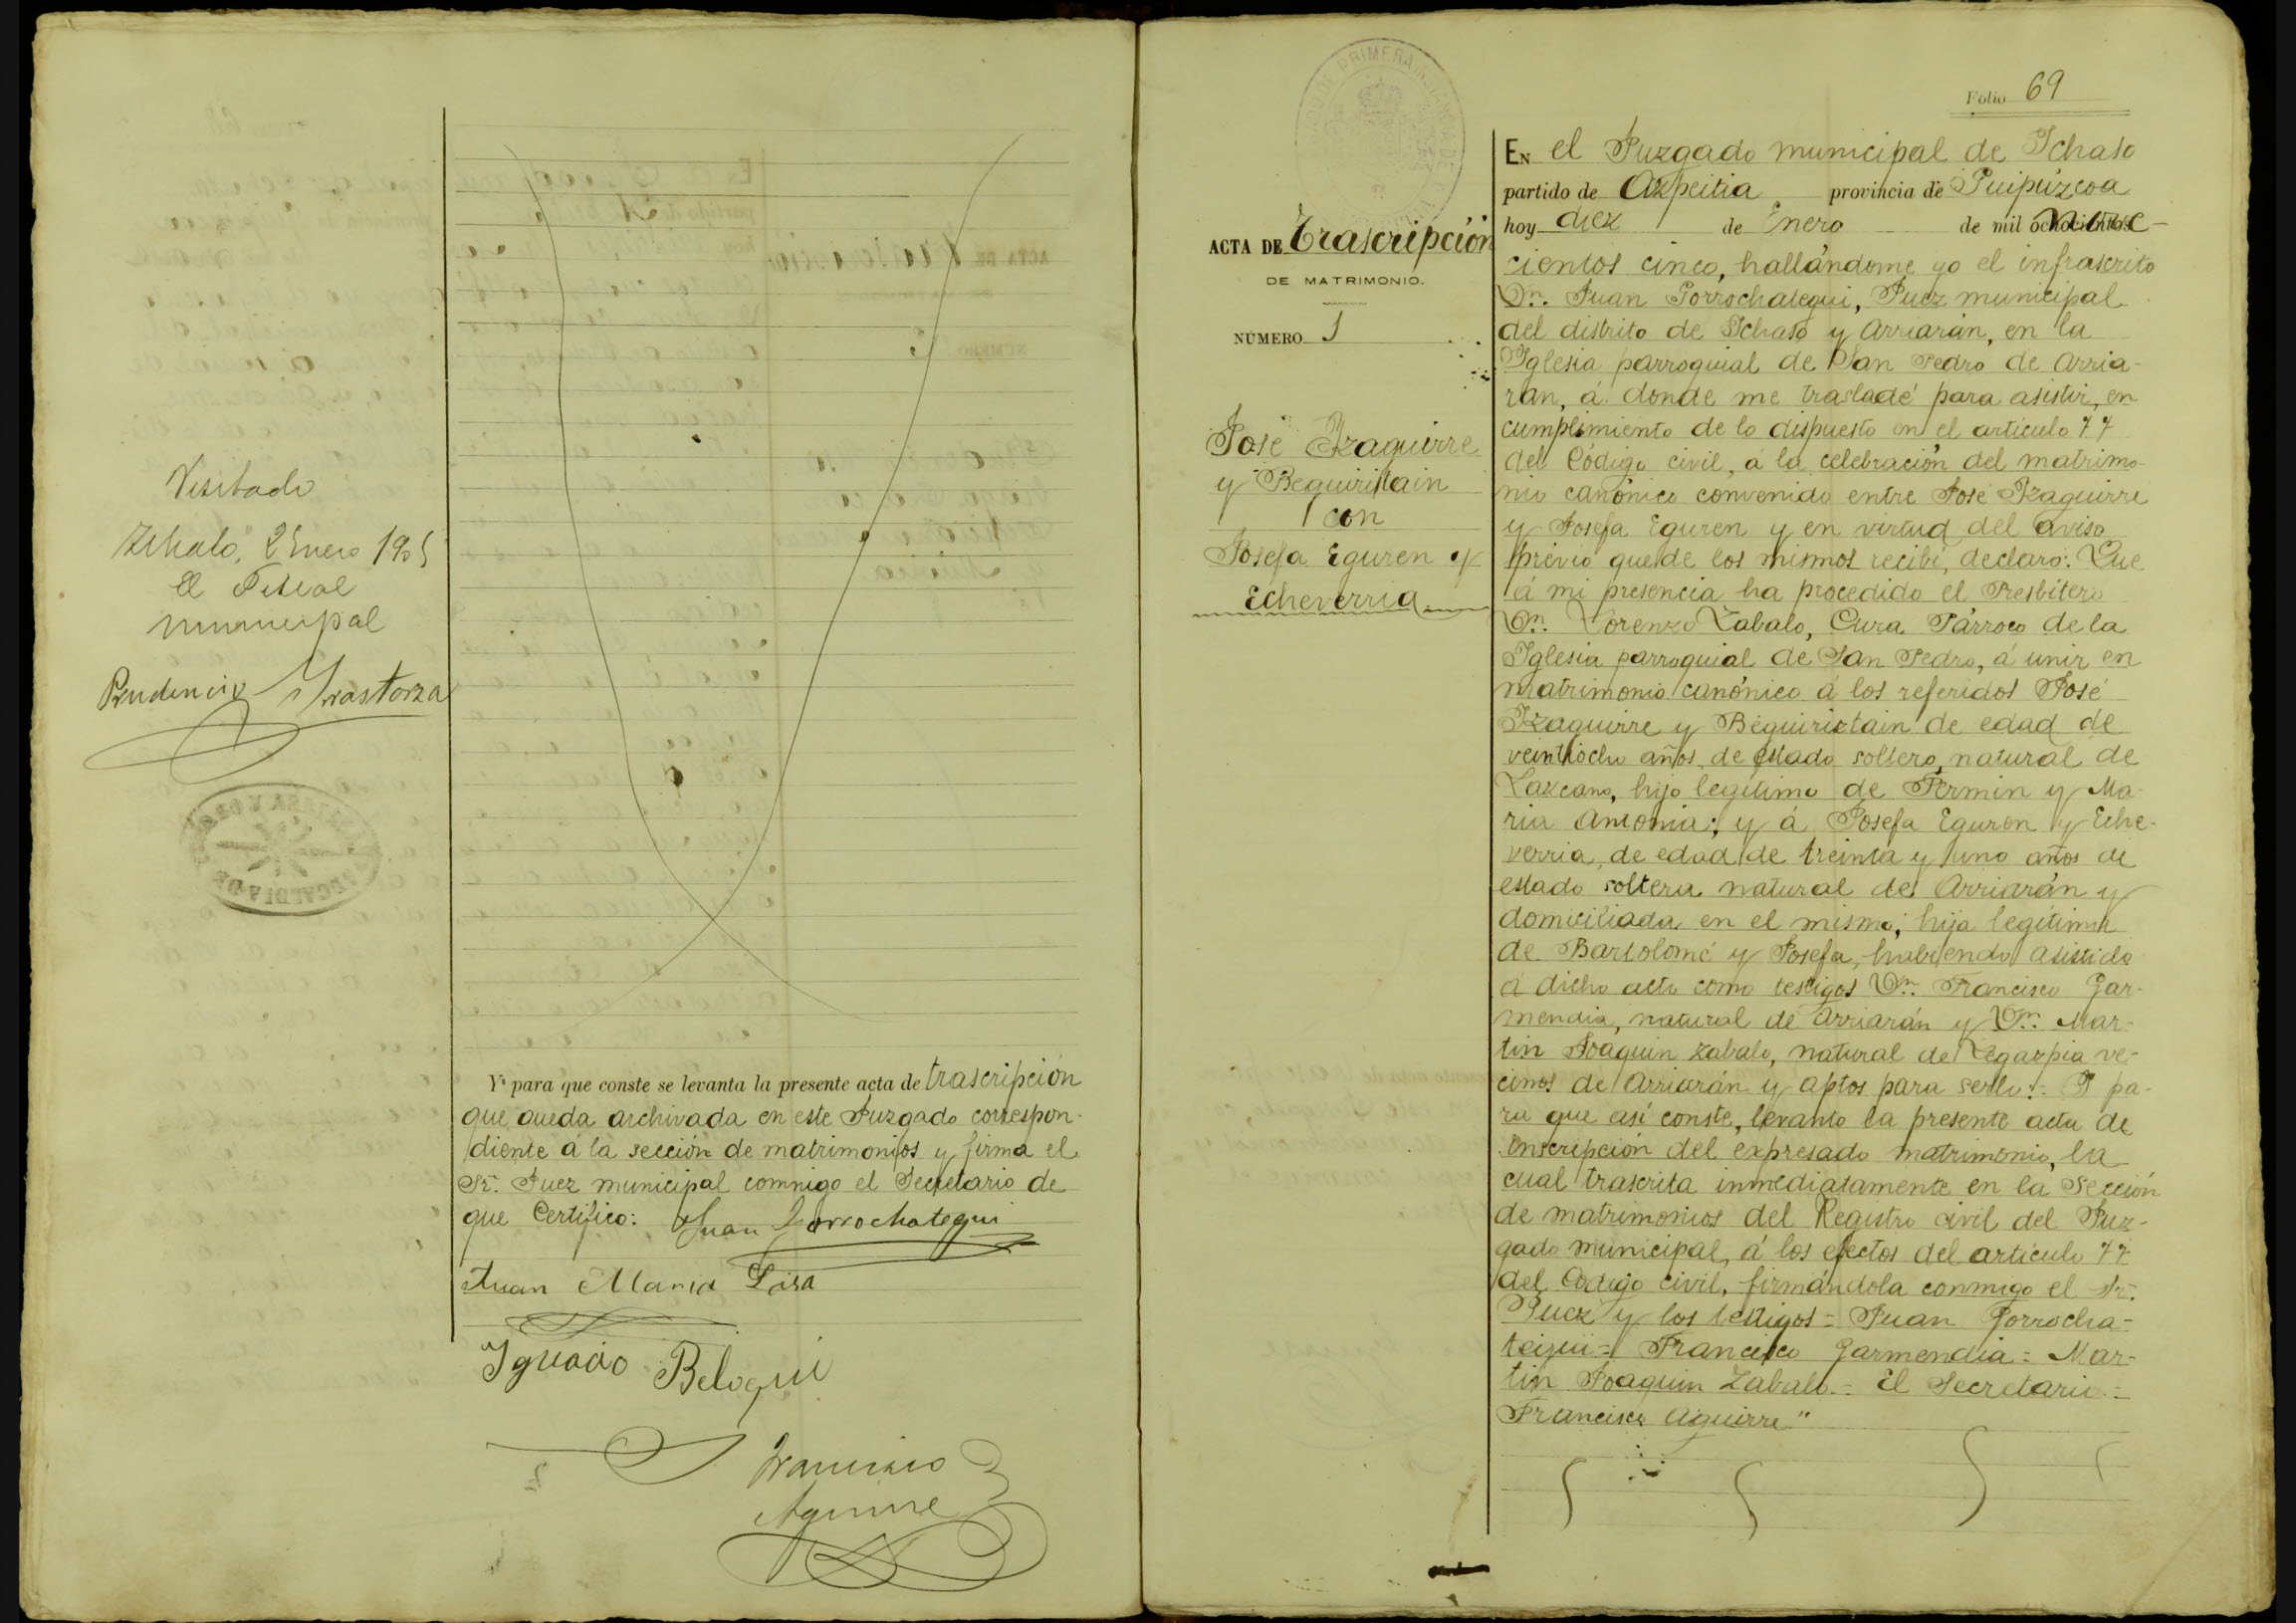 Visitado
Ichaso, 2 Enero 1905
El Fiscal
municipal
Prudencio Irastorza
ALCALDIA DE
Y para que conste se levanta la presente acta de trascripción
que queda archivada en este Juzgado correspon-
diente á la sección de matrimonios y firma el
Sr. Juez municipal commigo el Secretario de
que Certifico: Juan Gorrochategui
Juan Maria
Ignacio Belogui
Francisco
Aguirre
Folio 69
ACTA DE Trascripción
DE MATRIMONIO.
NÚMERO 1
José Izaguirre
y Beguiristain
con
Josefa Eguren y
Echeverria
EN el Juzgado municipal de Ichaso
partido de Azpeitia provincia de Guipúzcoa
hoy diez de Enero de mil nove-
cientos cinco, hallándome yo el infrascrito
Dn. Juan Gorrochategui, Juez municipal
del distrito de Ichaso y Arriarán, en la
Iglesia parroquial de San Pedro de Arria-
ran, á donde me trasladé para asistir, en
cumplimiento de lo dispuesto en el artículo 77
del Código civil, á la celebración del matrimo-
nio canónico convenido entre José Izaguirre
y Josefa Eguren y en virtud del aviso
previo que de los mismos recibí, declaro: Que
á mi presencia ha procedido el Presbítero
Dn. Lorenzo Zabalo, Cura Párroco de la
Iglesia parroquial de San Pedro, á unir en
matrimonio canónico á los referidos José
Izaguirre y Beguiristain de edad de
veintiocho años, de estado soltero, natural de
Lazcano, hijo legítimo de Fermin y Ma-
ria Antonia; y á Josefa Eguren y Eche-
verria, de edad de treinta y uno años de
estado soltera natural de Arriarán y
domiciliada en el mismo; hija legítima
de Bartolomé y Josefa, habiendo asistido
á dicho acto como testigos Dn. Francisco Gar-
mendia, natural de Arriarán y Dn. Mar-
tin Joaquin Zabalo, natural de Legazpia ve-
cinos de Arriarán y aptos para serlo:- Y pa-
ra que así conste, levanto la presente acta de
inscripción del expresado matrimonio, la
cual trascrita inmediatamente en la Sección
de matrimonios del Registro civil del Juz-
gado municipal, á los efectos del artículo 77
del Código civil, firmándola conmigo el Sr.
Juez y los testigos = Juan Gorrocha-
tegui = Francisco Garmendia = Mar-
tin Joaquin Zabalo = El Secretario =
Francisco Aguirre"